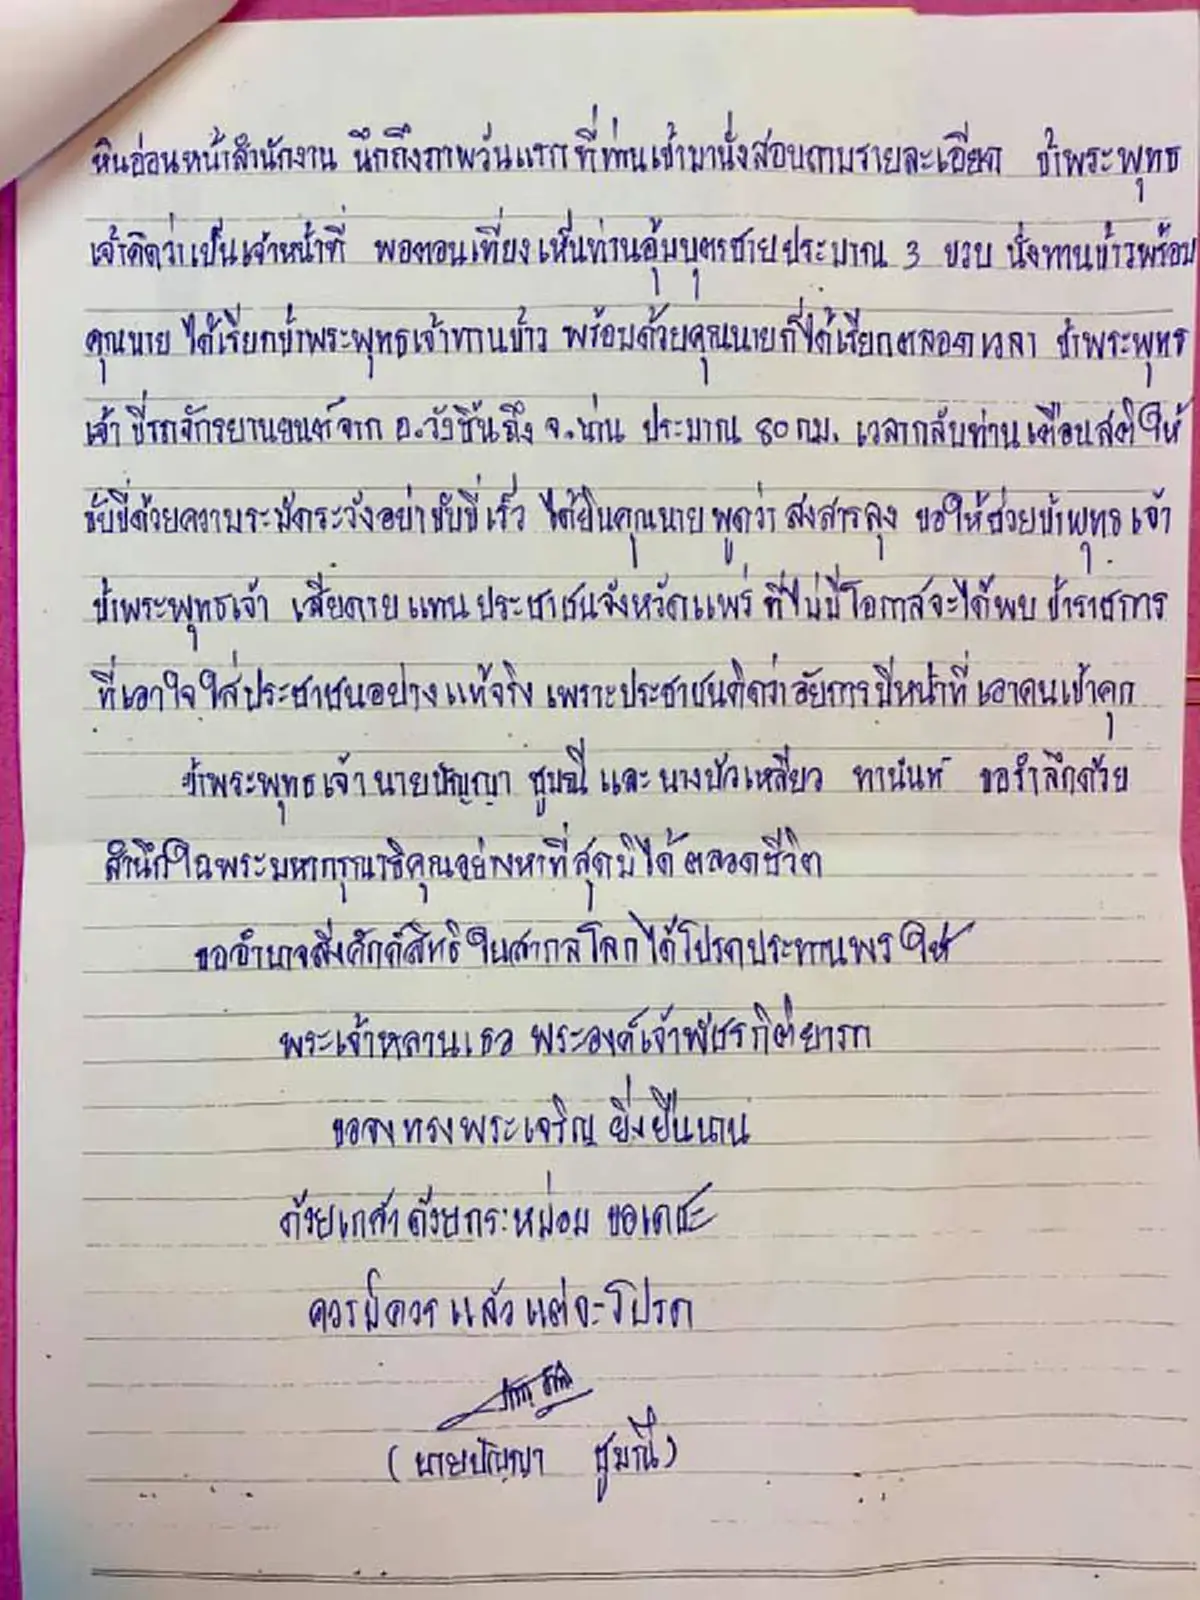 หินอ่อนหน้าสำนักงาน นึกถึงภาพวันแรกที่ท่านเข้ามานั่งสอบถามรายละเอียด ข้าพระพุทธ
เจ้าคิดว่าเป็นเจ้าหน้าที่ พอตอนเที่ยงเห็นท่านอุ้มบุตรชายประมาณ 3 ขวบ นั่งทานข้าวพร้อม
คุณนาย ได้เรียกข้าพระพุทธเจ้าทานข้าว พร้อมด้วยคุณนายก็ได้เรียกตลอดเวลา ข้าพระพุทธ
เจ้า ขี่รถจักรยานยนต์จาก อ.วังชิ้นถึง จ.น่าน ประมาณ 80 กม. เวลากลับท่านเตือนสติให้
ขับขี่ด้วยความระมัดระวังอย่าขับขี่เร็ว ได้ยินคุณนาย พูดว่า สงสารลุง ขอให้ช่วยข้าพุทธเจ้า
ข้าพระพุทธเจ้า เสียดาย แทน ประชาชนจังหวัดแพร่ ที่ไม่มีโอกาสจะได้พบ ข้าราชการ
ที่เอาใจใส่ประชาชนอย่างแท้จริง เพราะประชาชนคิดว่าอัยการมีหน้าที่ เอาคนเข้าคุก
ข้าพระพุทธเจ้า นายปัญญา ชูมณี และ นางบัวเหลียว ทานันท์ ขอรำลึกด้วย
สำนึกในพระมหากรุณาธิคุณอย่างหาที่สุดมิได้ ตลอดชีวิต
ขออำนาจสิ่งศักดิ์สิทธิ์ในสากลโลกได้โปรดประทานพร ให้
พระเจ้าหลานเธอ พระองค์เจ้าพัชรกิติยาภา
ขอจงทรงพระเจริญ ยิ่งยืนนาน
ด้วยเกศา ด้วยกระหม่อม ขอเดชะ
ควรมิควร แล้ว แต่จะโปรด
( นายปัญญา ชูมณี )